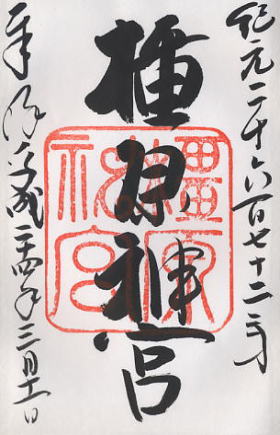 紀元二千六百七十二年
橿原神宮
奉拝 平成二十四年三月十一日
橿原
神宮